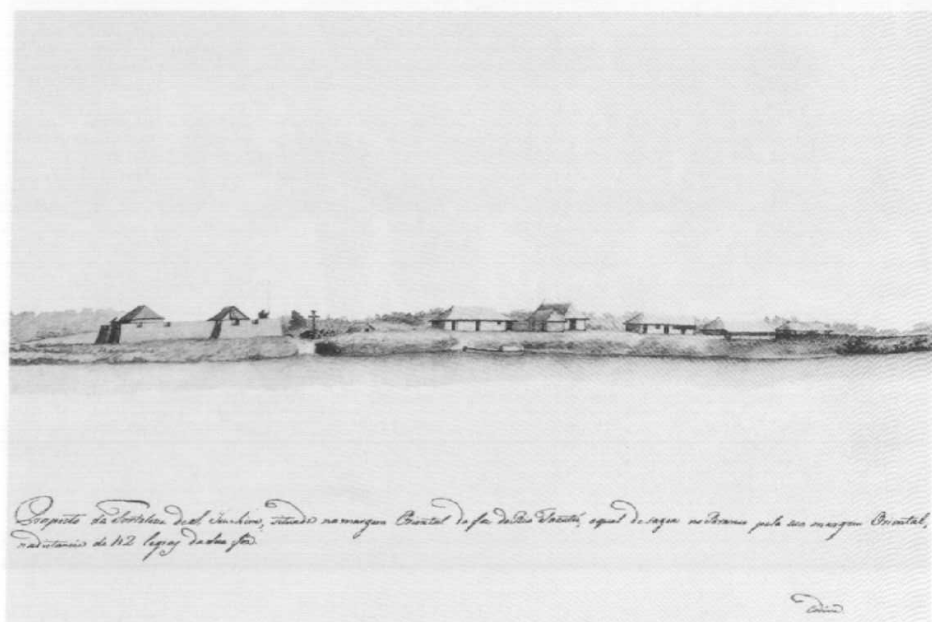 Prospecto da Fortaleza de S. Joachim, situada na margem Oriental da foz do Rio Tacutú, o qual desagua no Branco pela sua margem Oriental,
na distancia de 112 legoas da sua foz
Codina